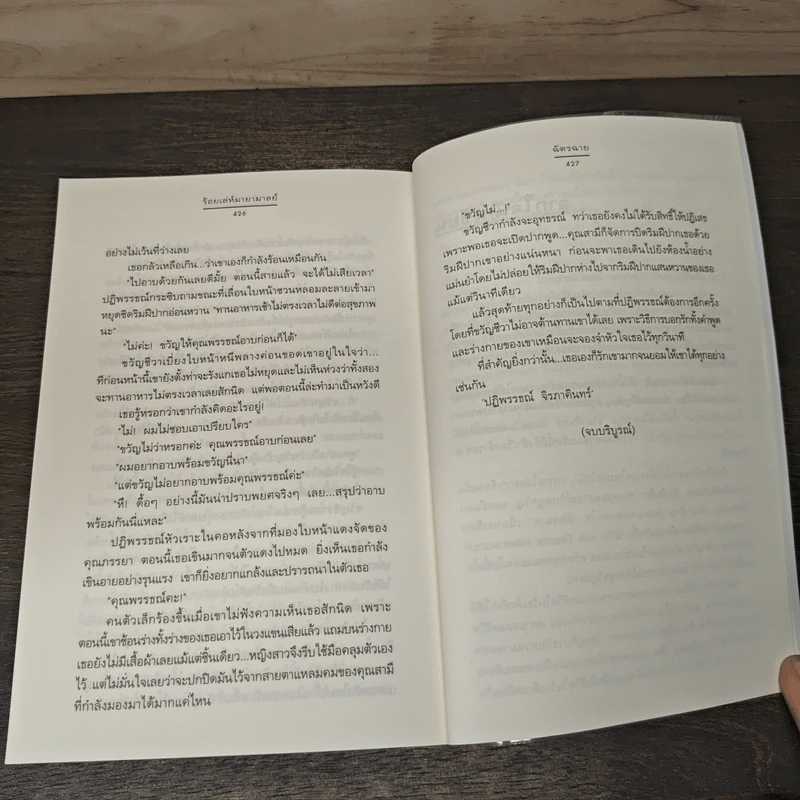 ร้อยเล่ห์มายามาลย์
426
อย่างไม่เว้นที่ว่างเลย
เธอกลัวเหลือเกิน...ว่าเขาเองก็กำลังร้อนเหมือนกัน
"ไปอาบด้วยกันเลยดีมั้ย ตอนนี้สายแล้ว จะได้ไม่เสียเวลา"
ปฏิพรรธน์กระซิบถามขณะที่เลื่อนใบหน้าชวนหลอมละลายเข้ามา
หยุดชิดริมฝีปากอ่อนหวาน "ทานอาหารเช้าไม่ตรงเวลาไม่ดีต่อสุขภาพ
นะ"
"ไม่ค่ะ! ขวัญให้คุณพรรธน์อาบก่อนก็ได้"
ขวัญชีวาเบี่ยงใบหน้าหนีพลางค่อนขอดเขาอยู่ในใจว่า...
ทีก่อนหน้านี้เขายังตั้งท่าจะรังแกเธอไม่หยุดและไม่เห็นห่วงว่าทั้งสอง
จะทานอาหารไม่ตรงเวลาเลยสักนิด แต่พอตอนนี้ล่ะทำมาเป็นหวังดี
เธอรู้หรอกว่าเขากำลังคิดอะไรอยู่!
"ไม่! ผมไม่ชอบเอาเปรียบใคร"
"ขวัญไม่ว่าหรอกค่ะ คุณพรรธน์อาบก่อนเลย"
"ผมอยากอาบพร้อมขวัญนี่นา"
"แต่ขวัญไม่อยากอาบพร้อมคุณพรรธน์ค่ะ"
"หึ! ดื้อๆ อย่างนี้มันน่าปราบพยศจริงๆ เลย...สรุปว่าอาบ
พร้อมกันนี่แหละ"
ปฏิพรรธน์หัวเราะในคอหลังจากที่มองใบหน้าแดงจัดของ
คุณภรรยา ตอนนี้เธอเขินมากจนตัวแดงไปหมด ยิ่งเห็นเธอกำลัง
เขินอายอย่างรุนแรง เขาก็ยิ่งอยากแกล้งและปรารถนาในตัวเธอ
"คุณพรรธน์คะ!"
คนตัวเล็กร้องขึ้นเมื่อเขาไม่ฟังความเห็นเธอสักนิด เพราะ
ตอนนี้เขาช้อนร่างทั้งร่างของเธอเอาไว้ในวงแขนเสียแล้ว แถมบนร่างกาย
เธอยังไม่มีเสื้อผ้าเลยแม้แต่ชิ้นเดียว...หญิงสาวจึงรีบใช้มือคลุมตัวเอง
ไว้ แต่ไม่มั่นใจเลยว่าจะปกปิดมันไว้จากสายตาแหลมคมของคุณสามี
ที่กำลังมองมาได้มากแค่ไหน
ฉัตรฉาย
427
"ขวัญไม่...!"
ขวัญชีวากำลังจะอุทธรณ์ ทว่าเธอยังคงไม่ได้รับสิทธิ์ให้ปฏิเสธ
เพราะพอเธอจะเปิดปากพูด...คุณสามีก็จัดการปิดริมฝีปากเธอด้วย
ริมฝีปากเขาอย่างแน่นหนา ก่อนจะพาเธอเดินไปยังห้องน้ำอย่าง
แม่นยำโดยไม่ปล่อยให้ริมฝีปากห่างไปจากริมฝีปากแสนหวานของเธอ
แม้แต่วินาทีเดียว
แล้วสุดท้ายทุกอย่างก็เป็นไปตามที่ปฏิพรรธน์ต้องการอีกครั้ง
โดยที่ขวัญชีวาไม่อาจต้านทานเขาได้เลย เพราะวิธีการบอกรักทั้งคำพูด
และร่างกายของเขาเหมือนจะจองจำหัวใจเธอไว้ทุกวินาที
ที่สำคัญยิ่งกว่านั้น...เธอเองก็รักเขามากจนยอมให้เขาได้ทุกอย่าง
เช่นกัน
'ปฏิพรรธน์ จิรภาคินทร์'
(จบบริบูรณ์)